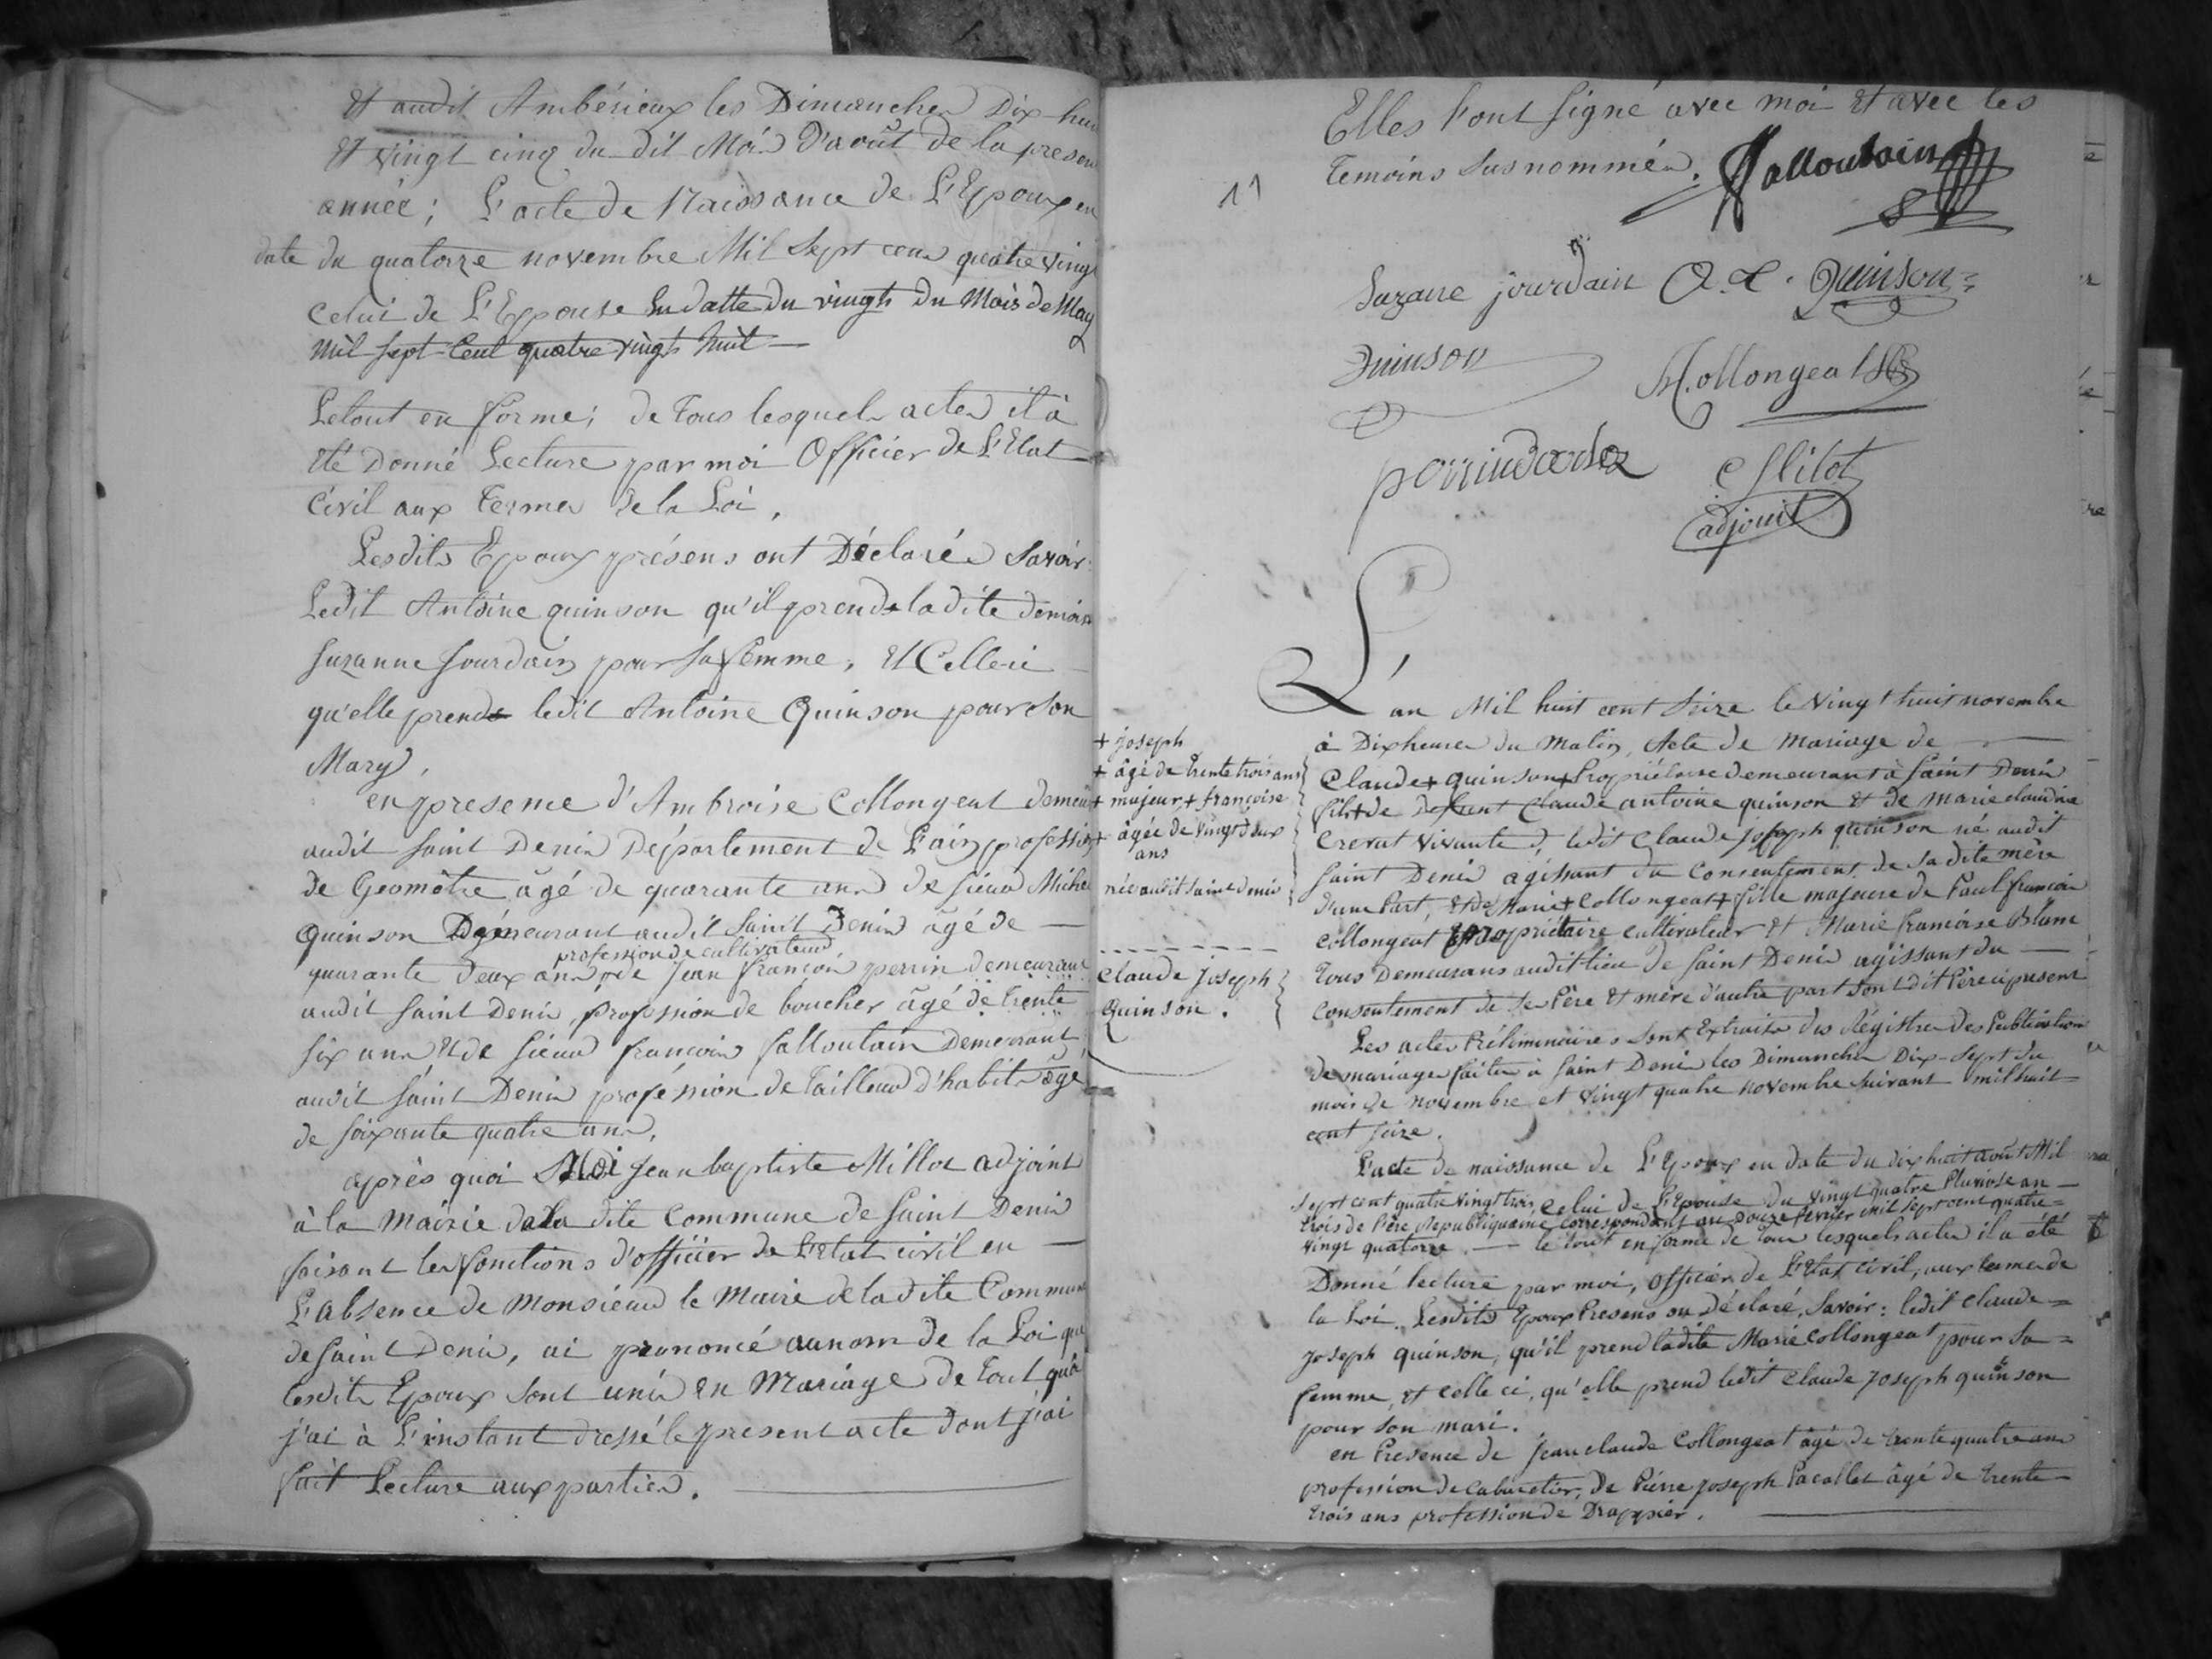 Et audit Ambérieux les Dimanches Dix huit
Et vingt cinq du dit Mois D'août de la presen
année; L'acte de Naissance de L'Epoux en
date du quatorze novembre Mil Sept cens quatre vingt
Celui de L'Epouse En datte du vingts du Mois de May
Mil Sept Cent quatre vingts huit
Le tout en forme; de tous lesquels actes il à
Eté Donné Lecture par moi Officier de L'Etat
Civil aux termes de la Loi,
Lesdits Epoux présens ont Déclarés Savoir:
Ledit Antoine quinson qu'il prends ladite demois
Suzanne Jourdain pour Sa femme, Et Celle ci
qu'elle prends ledit Antoine Quinson pour Son
Mary,
en presence d'Ambroise Collongeat demeu
audit Saint Denis Département de L'ain profession
de Geomètre âgé de quarante ans de Sieur Michel
Quinson Demeurant audit Saint Denis âgé de
profession de cultivateur
quarante deux ans de Jean François perrin demeurant
audit Saint Denis, profession de boucher âgé de trente
Six ans Et de Sieur françois falloutain Demeurant
audit Saint Denis profession de tailleur d'habits âgé
de Soixante quatre ans,
après quoi Moi Jean baptiste Millot adjoint
à la Mairie de la dite Commune de Saint Denis
faisant les fonctions d'officier de L'Etat civil en
L'absence de Monsieur le Maire de la dite Commune
de Saint Denis, ai prononcé au nom de la Loi que
lesdits Epoux Sont unis en Mariage de tout quoi
j'ai à L'instant dressé le present acte dont j'ai
fait Lecture aux parties.
Elles l'ont Signé avec moi Et avec les
temoins Susnommés. falloutain
11
Suzane jourdain A. C. Quinson
Quinson M. ollongeat
perrin Millot
adjoint
L'an Mil huit cent Seize le Vingt huit novembre
à Dix heures du Matin, Acte de Mariage de
Claude + quinson + Propriétaire demeurant à Saint Denis
fils + de defunt Claude antoine quinson Et de Marie claudine
Crevat Vivante, ledit Claude joseph quinson né audit
Saint Denis agissant du Consentement de Sa dite mère
D'une Part, Et de Marie + Collongeat + fille majeure de Paul françois
Collongeat Propriétaire cultivateur Et Marie françoise Blanc
tous Demeurans audit lieu de Saint Denis agissant du
Consentement de Ses Père Et mère d'autre part Son dit Père ici present
+ joseph
+ âgé de trente trois ans
+ majeur + françoise
+ âgée de vingt deux
ans
née audit Saint Denis
Claude Joseph
Quinson.
Les actes Préliminaires Sont Extraits des Régistres des Publications
de mariages faites à Saint Denis les Dimanches Dix-Sept du
mois de novembre et vingt quatre novembre Suivant mil huit
cent Seize.
L'acte de naissance de L'Epoux en date du dix huit août Mil
Sept cent quatre vingt trois, Celui de L'Epouse du vingt quatre Pluviose an
trois de L'ère Republiquaine correspondant au douze fevrier mil Sept cent quatre
vingt quatorze. le tout en forme de tous lesquels actes il a été
Donné lecture par moi, Officier de L'Etat Civil, aux termes de
la Loi. Lesdits Epoux Presens on Déclaré, Savoir: ledit Claude
Joseph quinson, qu'il prend ladite Marie Collongeat pour Sa
femme, et celle ci, qu'elle prend ledit Claude Joseph quinson
pour Son mari.
en Presence de Jean claude Collongeat âgé de trente quatre ans
profession de cabaretier, de Pierre joseph Pacallet âgé de trente
trois ans profession de Drappier.